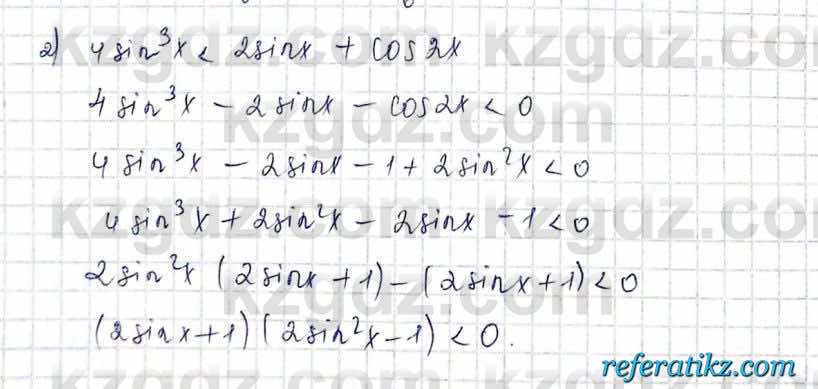 2) 4sin³x < 2sinx + cos2x
4sin³x - 2sinx - cos2x < 0
4sin³x - 2sinx - 1 + 2sin²x < 0
4sin³x + 2sin²x - 2sinx - 1 < 0
2sin²x (2sinx + 1) - (2sinx + 1) < 0
(2sinx + 1)(2sin²x - 1) < 0.
referatikz.com